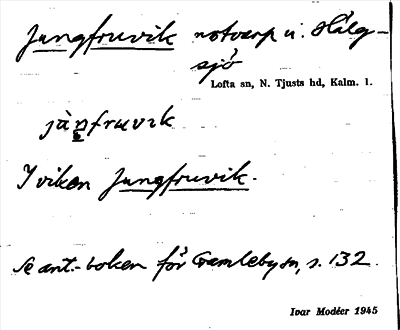 Jungfruvik notvarp i. Hälg-
sjö
Lofta sn, N. Tjusts hd, Kalm. l.
jàŋfruvik
I viken Jungfruvik.
Se ant.-boken för Gamleby sn, s. 132.
Ivar Modéer 1945